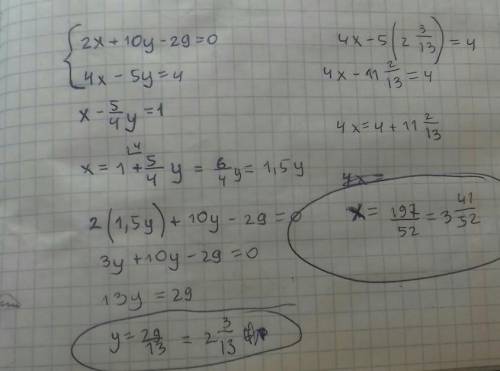 2x+10y-29=0
4x-5y=4
x-5/4y=1
x=1+5/4y=6/4y=1,5y
2(1,5y)+10y-29=0
3y+10y-29=0
13y=29
y=29/13=2 3/13
4x-5(2 3/13)=4
4x-11 2/13=4
4x=4+11 2/13
x=197/52=3 41/52